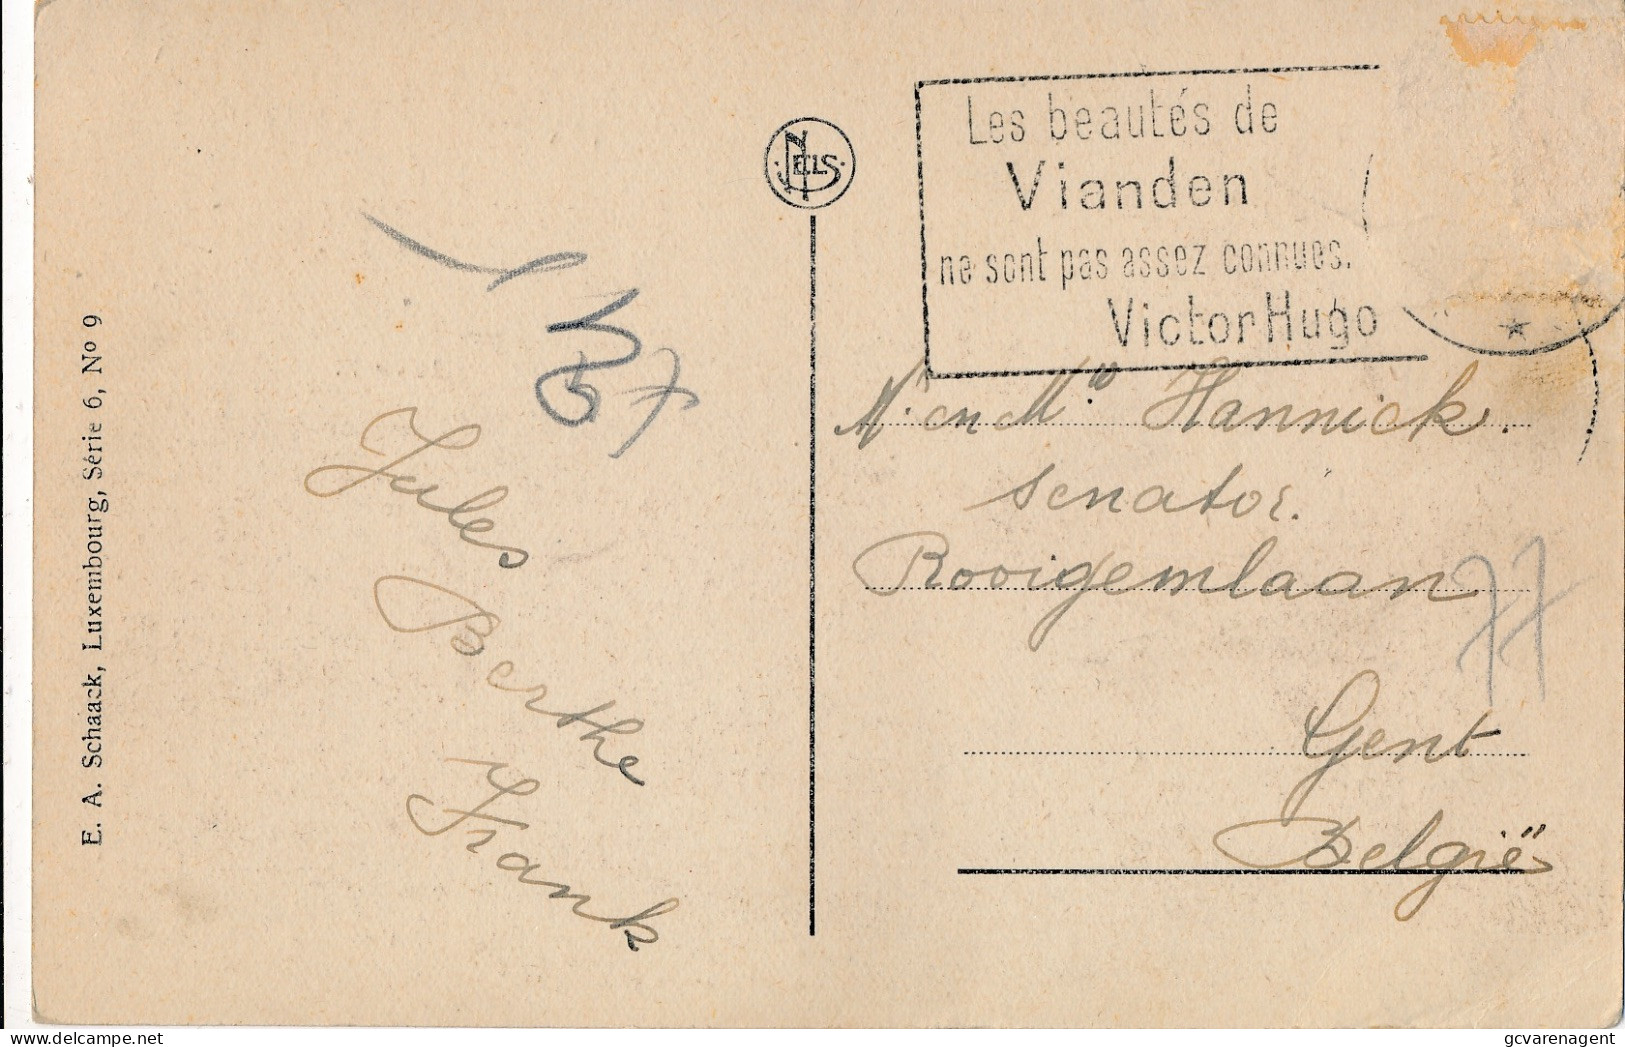 E. A. Schaack, Luxembourg, Série 6, Nº 9
NELS
Les beautés de
Vianden
ne sont pas assez connues.
Victor Hugo
Jules
Berthe
Frank
M. en Mᵉ Hannick.
senator.
Rooigemlaan 77
Gent
België
gcvarenagent